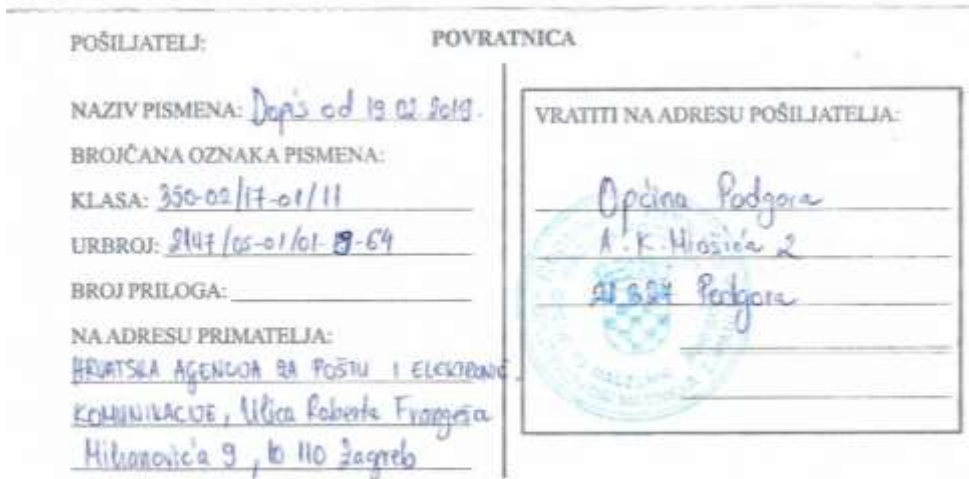 POŠILJATELJ:
POVRATNICA
NAZIV PISMENA: Dopis od 19.02.2019.
BROJČANA OZNAKA PISMENA:
KLASA: 350-02/17-01/11
URBROJ: 2147/05-01/01-19-64
BROJ PRILOGA:
NA ADRESU PRIMATELJA:
HRVATSKA AGENCIJA ZA POŠTU I ELEKTRONIČ.
KOMUNIKACIJE, Ulica Roberta Frangeša
Mihanovića 9, 10 110 Zagreb
VRATITI NA ADRESU POŠILJATELJA:
Općina Podgora
A. K. Miošića 2
21 327 Podgora